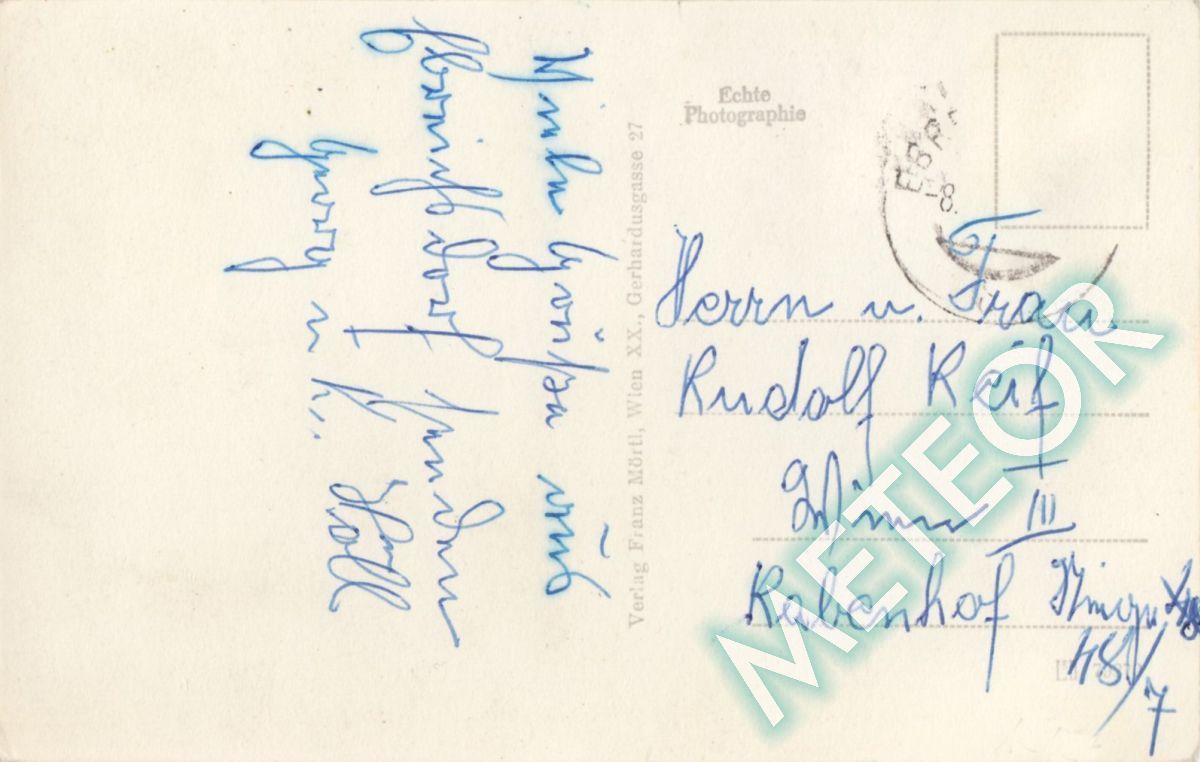 Viele Grüße aus
Ebreichsdorf senden
u. Holl
Verlag Franz Mörtl, Wien XX., Gerhardusgasse 27
Echte
Photographie
EBRE
-8.
Herrn u. Frau
Rudolf Reif
Wien III
Rabenhof Stiege
48/7
METEOR